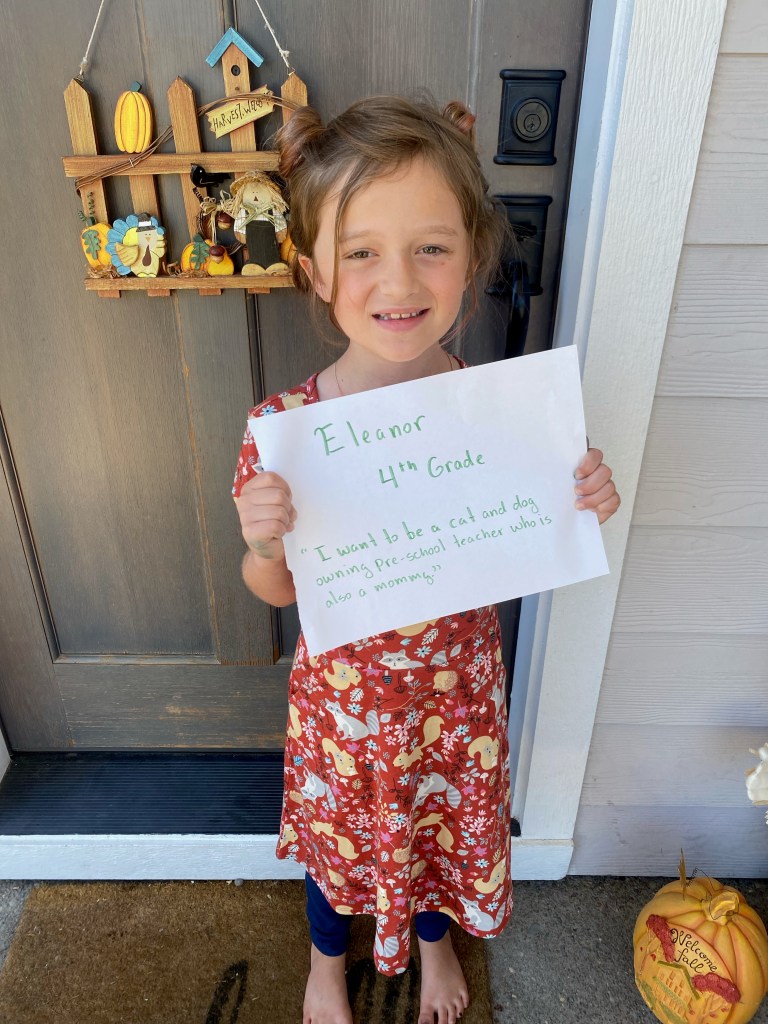 HARVEST WELCOME
Eleanor
4th Grade
"I want to be a cat and dog
owning pre-school teacher who is
also a mommy."
Welcome
fall